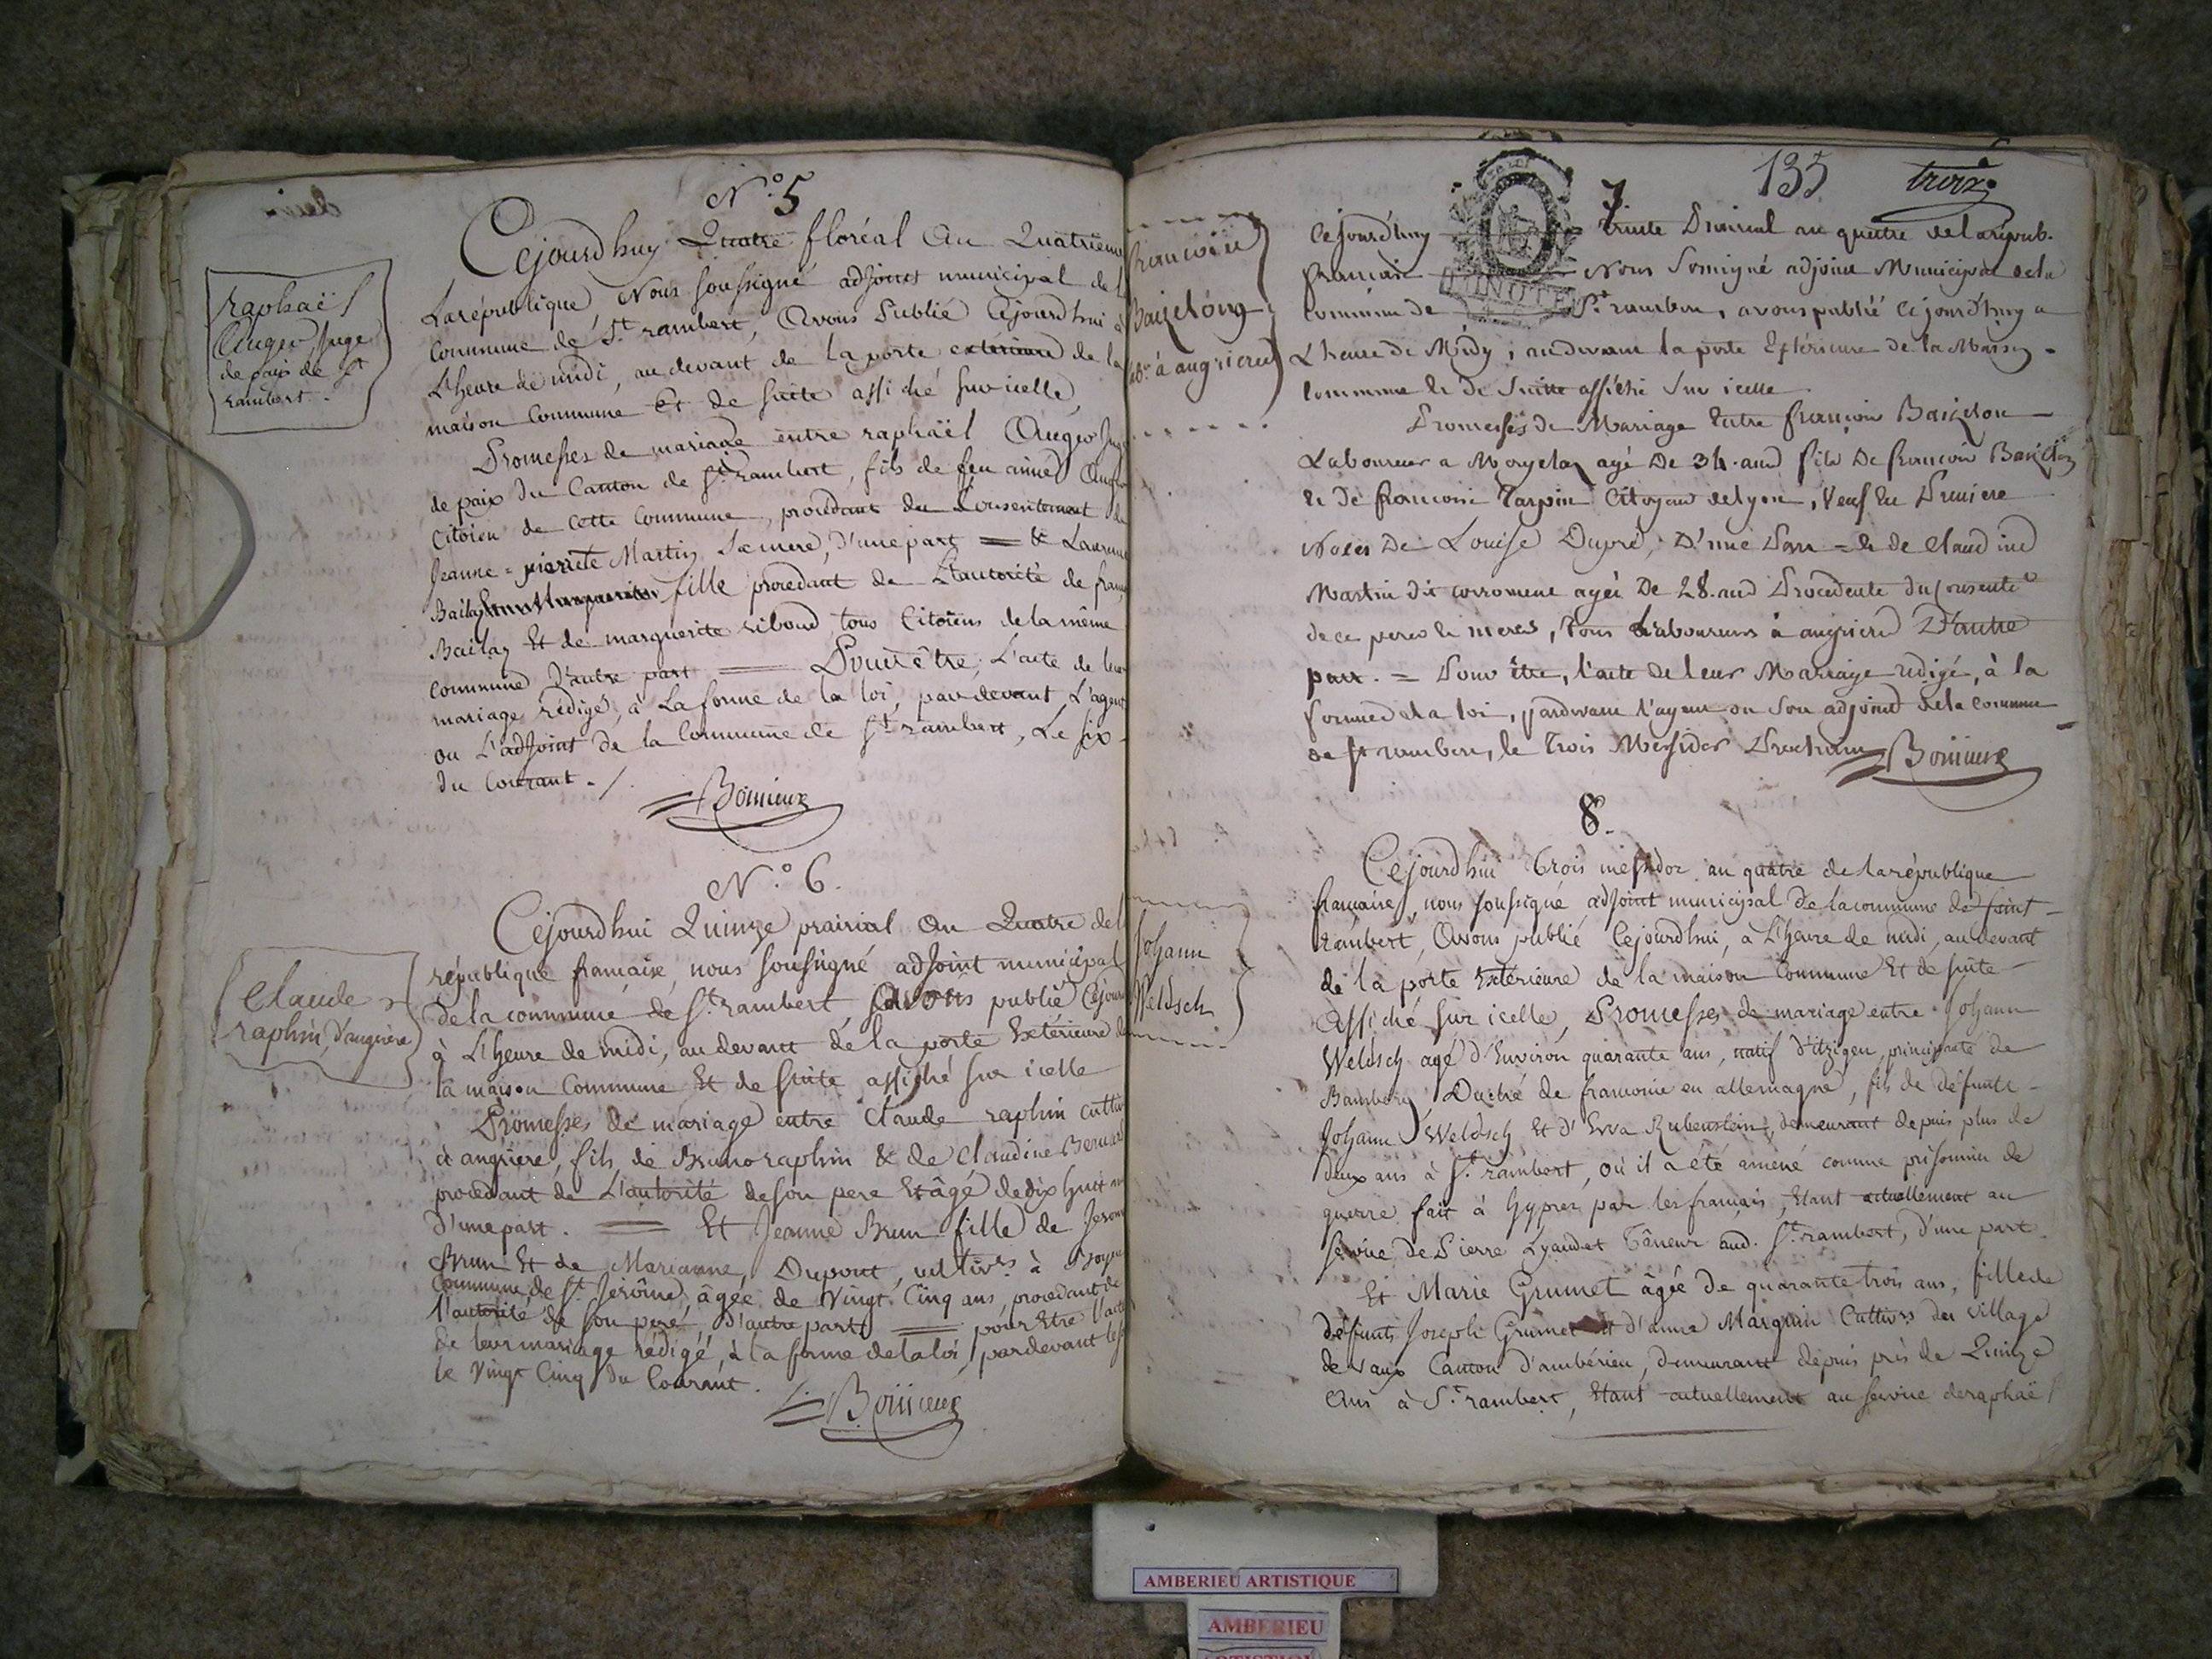 N.° 5
raphaël
Auger Juge
de paix de St
rambert.
Cejourdhuy Quatre floréal an Quatrieme
Larépublique, Nous soussigné adjoint municipal de
Commune de St rambert, Avons Publié Cejourdhui
L'heure de midi, au devant de la porte extérieure de la
maison Commune Et de suite affiché sur icelle,
Promesses de mariage entre raphaël Auger Juge
de paix du Canton de St rambert, fils de feu aimé
Citoien de cette Commune, procedant du Consentement
Jeanne = pierrete Martin sa mere, d'une part = & Laurence
Bailly fille procedant de L'autorité de
Bailly Et de marguerite riboud tous Citoiens de la même
commune d'autre part = Pour être, L'acte de leur
mariage rédigé, à La forme de la loi, par devant L'agent
ou L'adjoint de la Commune de St rambert, Le six
du Courant ./.
Bonieux
N.° 6.
Claude
raphin, d'angrière
Cejourdhui Quinze prairial an Quatre de
république francaise, nous soussigné adjoint municipal
De la commune de St rambert, avons publié
à L'heure de midi, au devant de la porte Extérieure
la maison Commune Et de suite affiché sur icelle
Promesses de mariage entre Claude raphin
à angrière, fils de Bruno raphin & de Claudine
procedant de L'autorité de son pere Et âgé de dix huit
D'une part. = Et Jeanne Brun fille de
Brun Et de Marianne Dupont, cultivrs à
Commune de St Jerôme, âgée de Vingt Cinq ans, procedant de
l'autorité de son pere, d'autre part = pour Etre l'acte
de leur mariage rédigé, à la forme de la loi, par devant
le Vingt Cinq du Courant.
Bonieux
135
troiz
7
Francois
Baizelon
à angrieres
Cejourd'huy trente Prairial an quatre de la répub.
francaise Nous Soussigné adjoint Municipal de la
commune de St rambert, avons publié cejourd'huy a
L'heure de Midy, au devant la porte Extérieure de la Maison
Commune & de Suitte affiché Sur icelle
Promesses de Mariage Entre françois Baizelon
Laboureur a agé De 34. ans fils De françois Baizelon
& De francoise Tarpin Citoyens de lyon, Veuf En Premiere
Noces De Louise Dupré, D'une Part = & de Claudine
Martin dit agée De 28. ans Procedente du Consentet
de ce peres & meres, tous Laboureurs à angriere D'autre
part. = Pour être, l'acte de leur Mariage redigé, à la
forme de la loi, pardevant l'agent ou Son adjoint de la commune
de St rambert, le trois Messidor Prochain
Bonieux
8.
Johann
Weldsch
Cejourdhui trois messidor an quatre de la république
francaise, nous soussigné adjoint municipal de la commune de saint
rambert, Avons publié Cejourdhui, à L'heure de midi, au devant
de la porte Extérieure de la maison Commune Et de suite
Affiché sur icelle, Promesses de mariage entre Johann
Weldsch agé d'Environ quarante ans, natif d'itzigen principauté de
Bamberg, Duché de franconie en allemagne, fils de défunts
Johann Weldsch Et d'Evva Rubenstein, demeurant depuis plus de
deux ans à St rambert, où il a été amené comme prisonnier de
guerre fait à hypres par les francais, Etant actuellement au
service de Pierre Lyaudet Tâneur aud. St rambert, d'une part.
Et Marie Grumet âgée de quarante trois ans, fille de
défunts Joseph Grumet Et d'anne Marguin Cultivrs du village
de vaux Canton d'ambérieu, demeurant depuis près de Quinze
Ans à St rambert, Etant actuellement au service de raphaël
AMBERIEU ARTISTIQUE
AMBERIEU
ARTISTIQUE